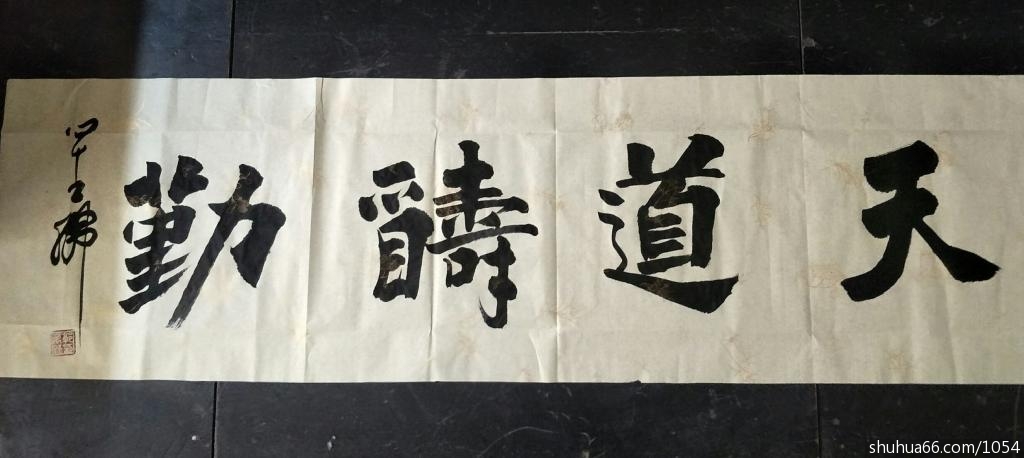 天道醻勤
shuhua66.com/1054